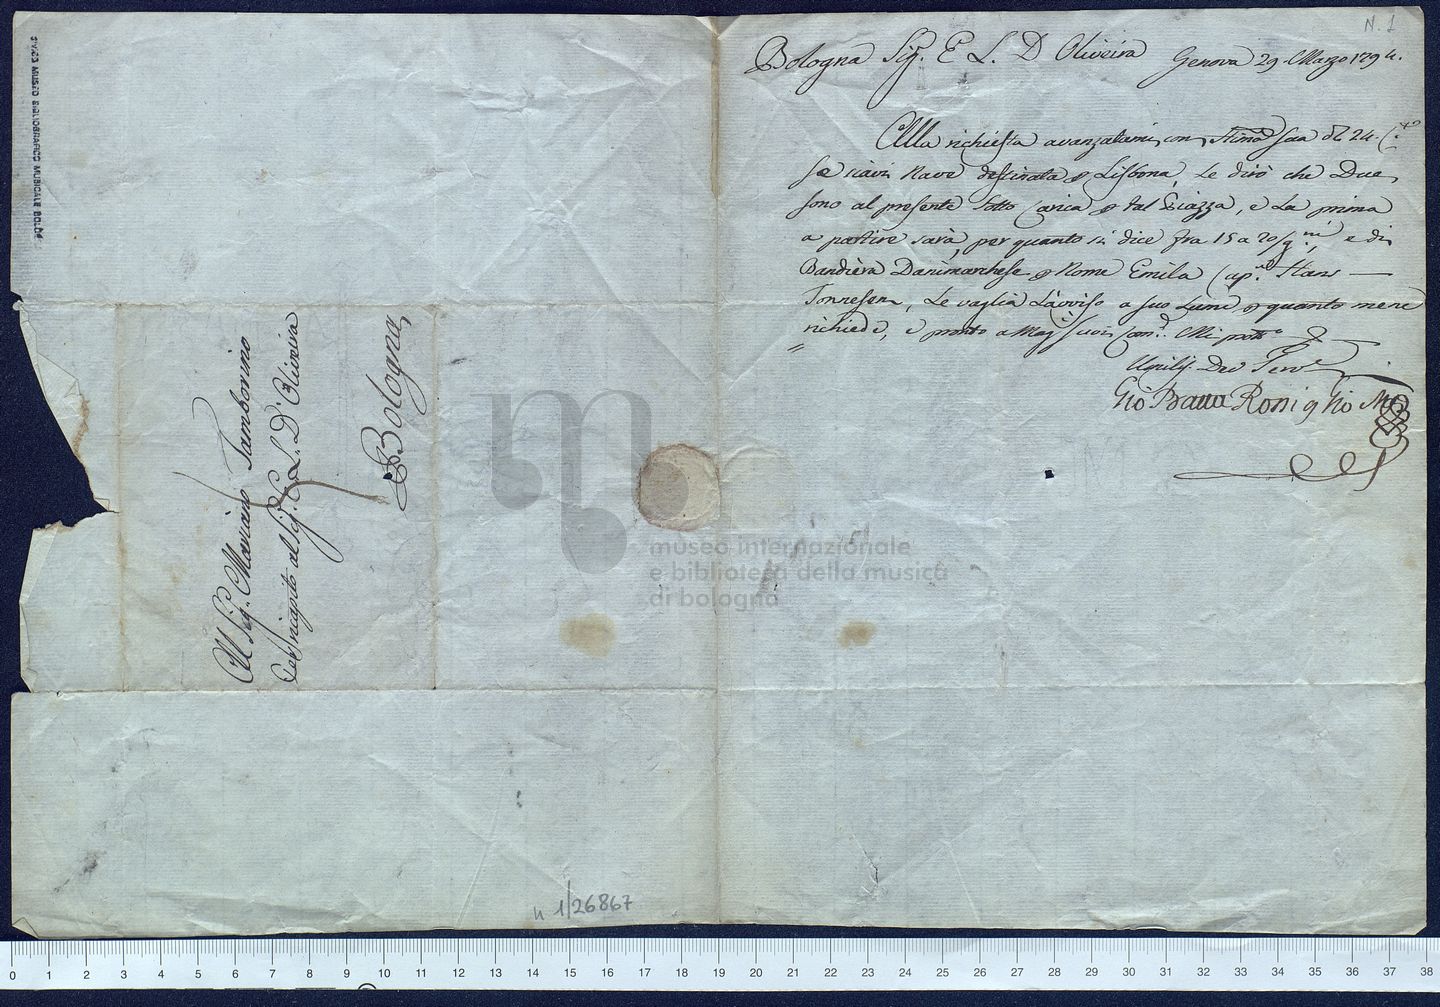 N. 1
Bologna Sig.r E L. D Oliveira Genova 29. Marzo 1794.
Alla richiesta avanzatami con stima sua di 24. C.te
se siavi Nave destinata p Lisbona, Le dirò che Due
sono al presente sotto Carica p tal Piazza, e La prima
a partire sarà, per quanto si dice fra 15 a 20/g.ni, e di
Bandiera Danimarchese p Nome Emila Cap.n Hans
Tonnesen, Le vaglia L'avviso a suo Lume p quanto me ne
richiede, e pronto a Mag.i suoi Com.di Mi prot.o
Umiliss. Dev Serv.e
Gio Batta Ronig Gio M
Al Sig.r Mariano Tamborino
Per ricapito al Sig.r E. L. D'Oliveira
Bologna
CIVICO MUSEO BIBLIOGRAFICO MUSICALE BOLOG
museo internazionale
e biblioteca della musica
di bologna
n 1/26867
0 1 2 3 4 5 6 7 8 9 10 11 12 13 14 15 16 17 18 19 20 21 22 23 24 25 26 27 28 29 30 31 32 33 34 35 36 37 38